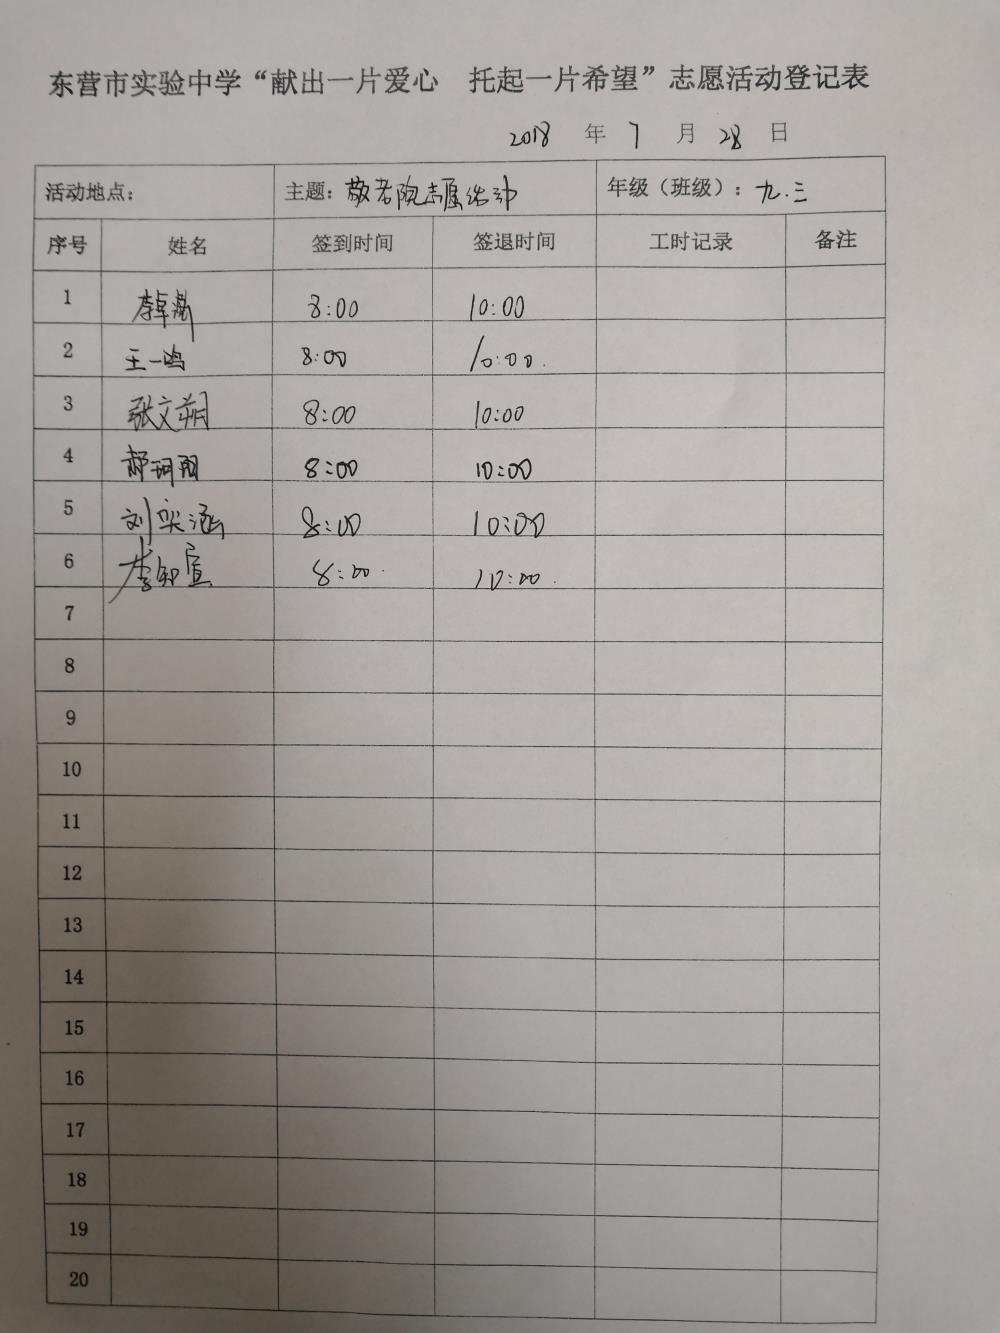 东营市实验中学“献出一片爱心 托起一片希望”志愿活动登记表
2018 年 7 月 28 日
活动地点： 主题：敬老院志愿活动 年级（班级）：九.三
序号 姓名 签到时间 签退时间 工时记录 备注
1 李卓 8:00 10:00
2 王一鸣 8:00 10:00.
3 张文朔 8:00 10:00
4 郝珂 8:00 10:00
5 刘奕涵 8:00 10:00
6 李知宣 8:00. 10:00.
7
8
9
10
11
12
13
14
15
16
17
18
19
20